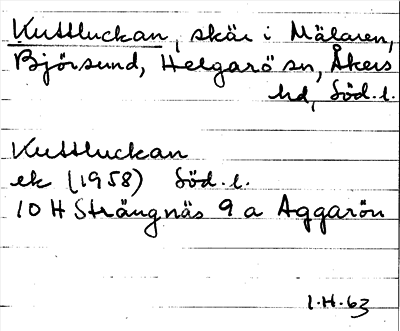 Kuttluckan, skär i Mälaren,
Björsund, Helgarö sn, Åkers
hd, Söd. l.
Kuttluckan
ek (1958) Söd. l.
10 H Strängnäs 9 a Aggarön
1.H.63